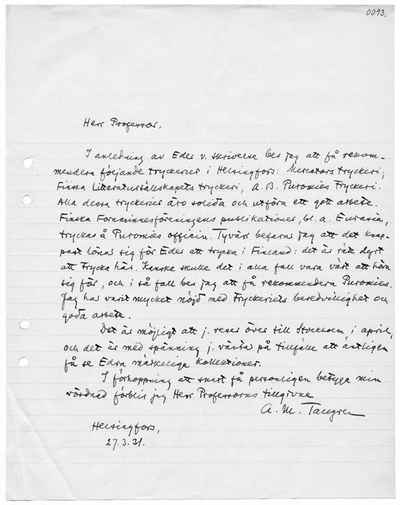 0093.
Herr Professor,
I anledning av Eders v. skrivelse ber jag att få rekom-
mendera följande tryckerier i Helsingfors: Mercators tryckeri,
Finska Litteratursällskapets tryckeri, A.B. Puromies Tryckeri.
Alla dessa tryckerier äro solida och utföra ett gott arbete.
Finska Fornminnesföreningens publikationer, bl. a. Eurasia,
tryckas å Puromies officin. Tyvärr befarar jag att det knap-
past lönar sig för Eder att trycka i Finland: det är rätt dyrt
att trycka här. Kanske skulle det i alla fall vara värt att höra
sig för, och i så fall ber jag att få rekommendera Puromies.
Jag har varit mycket nöjd med tryckeriets beredvillighet och
goda arbete.
Det är möjligt att j. reser över till Stockholm i april,
och det är med spänning j. väntar på tillfälle att äntligen
få se Edra märkeliga kollektioner.
I förhoppning att snart få personligen betyga min
vördnad förblir jag Herr Professorns tillgivne
A. M. Tallgren
Helsingfors,
27.3.31.